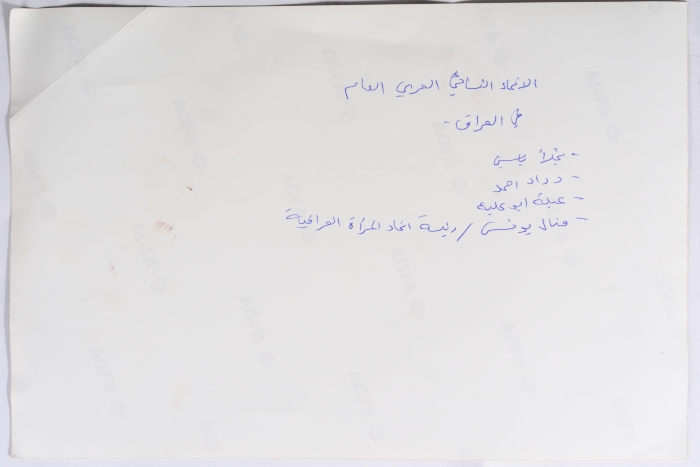 الاتحاد النسائي العربي العام
في العراق -
- نجلاء يـٰسين
- وداد احمد
- عبلة ابو علبه
- منال يونس / رئيسة اتحاد المرأة العراقية
AGFA
AGFA
AGFA
AGFA
AGFA
AGFA
AGFA
AGFA
AGFA
AGFA
AGFA
AGFA
AGFA